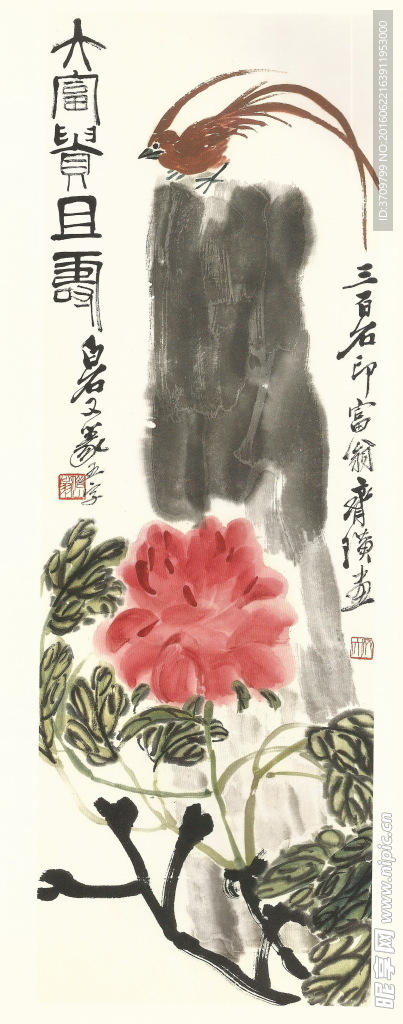 大富貴且壽
白石又篆五字
三百石印富翁齊璜畫
ID:3709799 NO:20160622163911953000
昵享网 www.nipic.cn